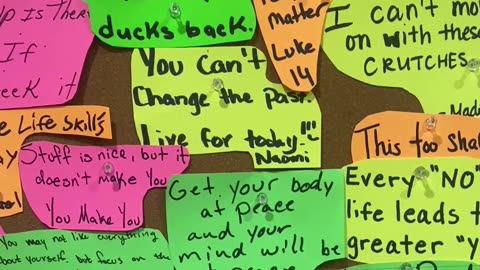 Up Is There
If
eek it
ducks back.
matter
Luke
14
I can't mo
on with these
CRUTCHES
You Can't
Change the Past.
Live for today!!!
Naomi
e Life Skills
Stuff is nice, but it
doesn't make You
You Make You
This too Shal
Get your body
at Peace
and your
mind will be
Every "NO"
life leads t
greater "y
You may not like everything
about yourself, but focus on the